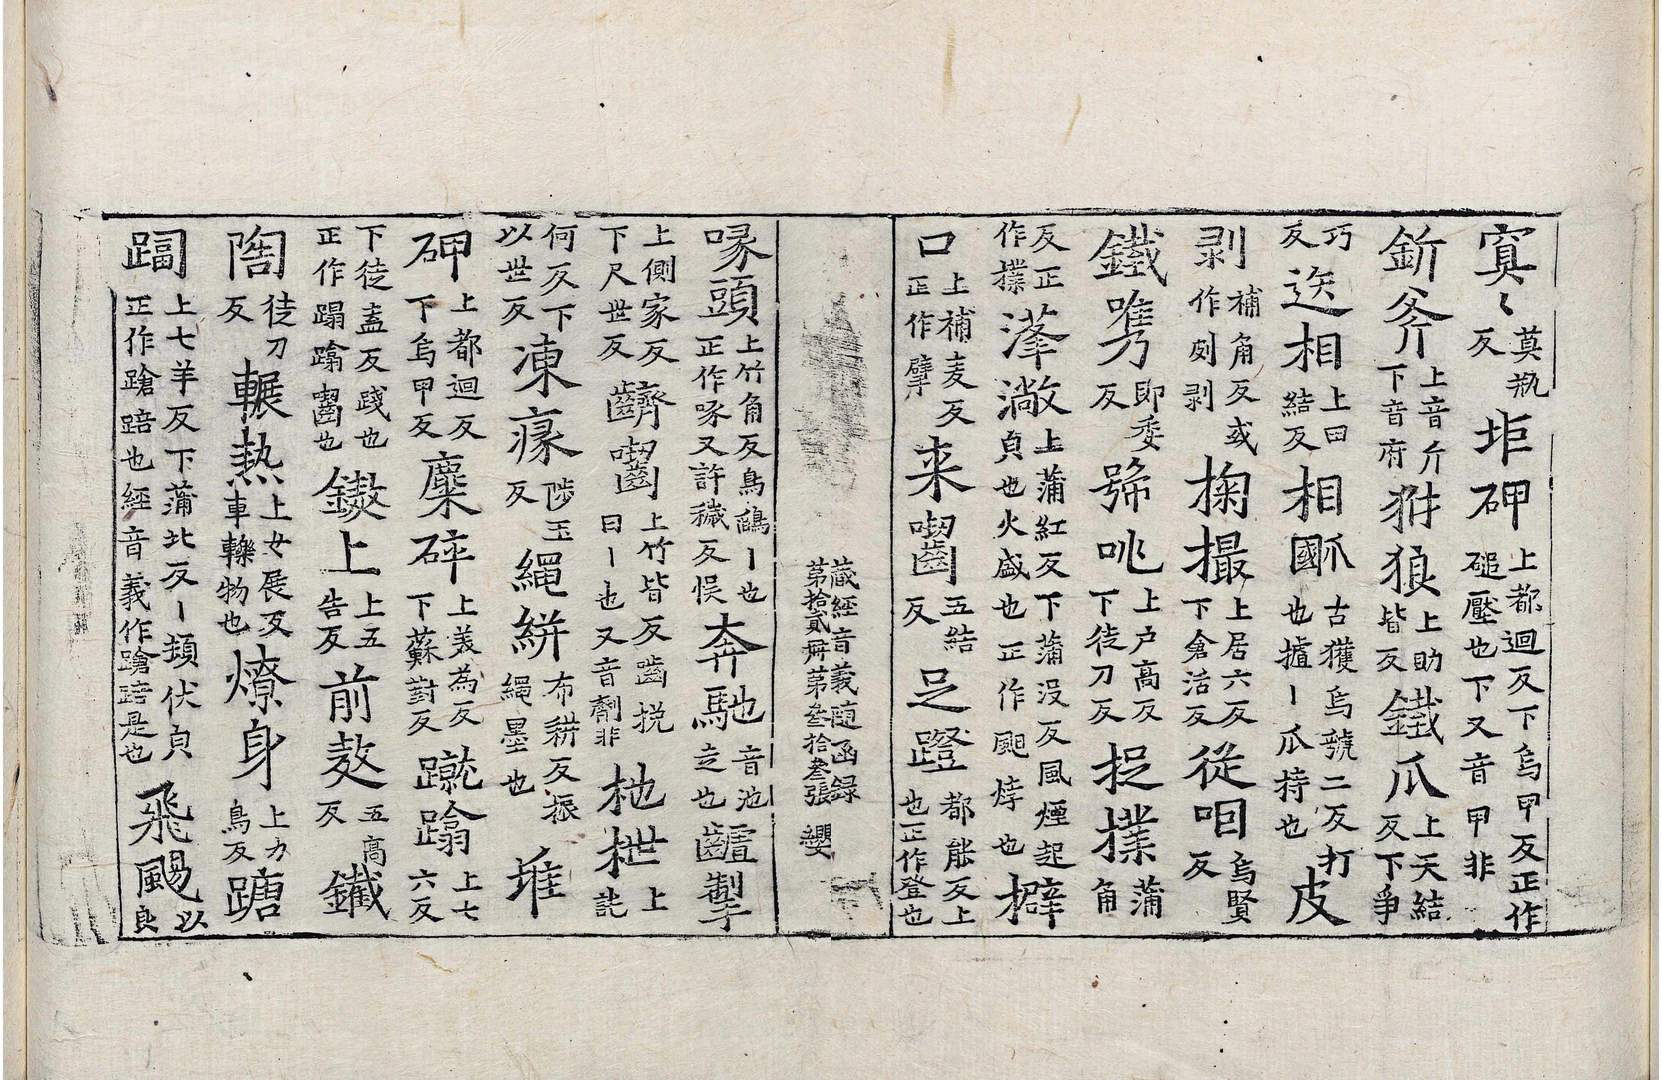 寞〻莫瓶反𡊛砷上都迴反下烏甲反正作磓壓也下又音甲非
釿斧上音斤下音府犲狼上助皆反鐵爪上天結反下爭
巧反迭相上田結反相㼌國古獲烏號二反打也攎丨爪持也皮
剥補角反或作刻剥掬撮上居六反下倉活反從咽烏賢反
鐵嘴即委反號咷上户高反下徒刀反捉撲蒲角
反正作撲漨㵽上蒲紅反下蒲没反風煙起皃也火盛也正作㷯㶿也擗
口上補麦反正作擘来囓五結反足蹬都能反上也正作登也
藏經音義随函録
第拾貳冊第叄拾叄張 纓
啄頭上竹角反鳥鵮丨也正作啄又許穢反悮奔馳音池走也齟掣
上側家反下尺世反齌囓上竹皆反齒挽曰丨也又音劑非杝枻上訛
何反下以世反凍瘃陟玉反繩絣布耕反振繩墨也堆
砷上都迴反下烏甲反麋碎上美為反下蘇對反蹴蹹上七六反
下徒盍反踐也正作蹋蹹囓也鏉上上五告反前敖五高反鐵
陶徒刀反輾熱上女展反車轢物也燎身上力鳥反蹡
踾上七羊反下蒲北反丨頬伏皃正作蹌踣也經音義作蹌踣是也飛颺以良